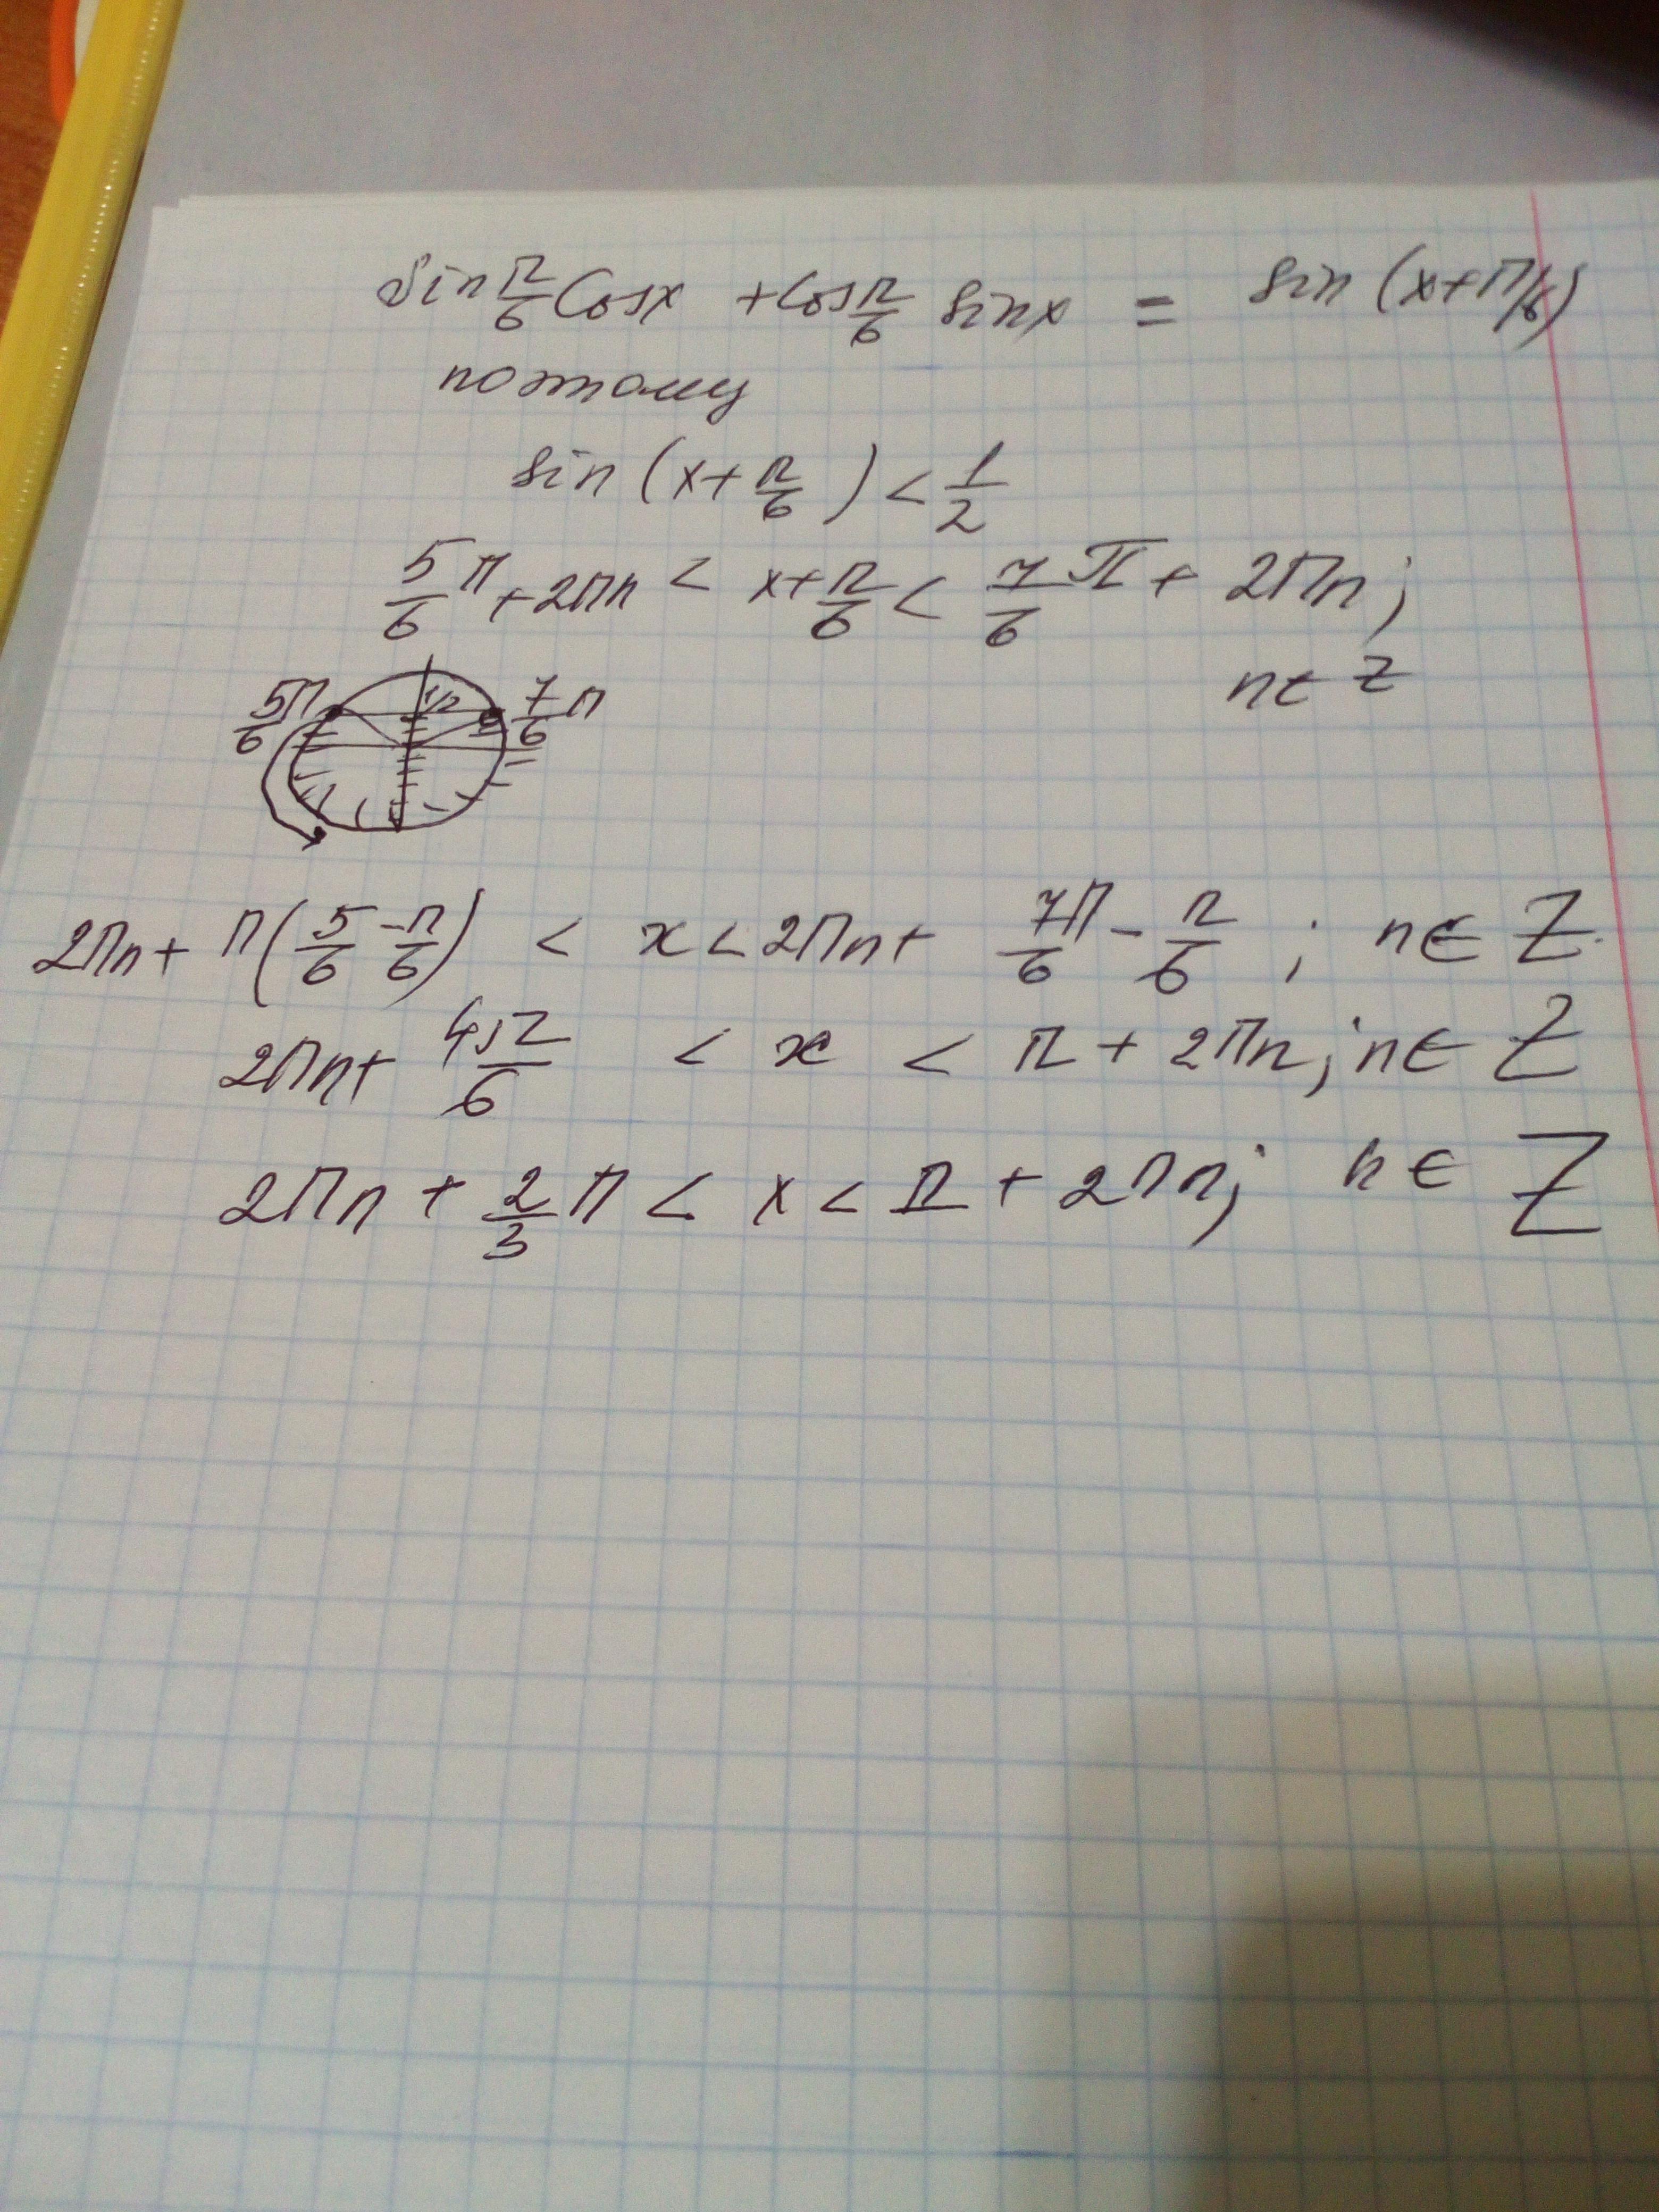 sin π/6 cosx + cos π/6 sinx = sin (x+π/6)
поэтому
sin (x+ π/6) < 1/2
5/6 π + 2πn < x+ π/6 < 7/6 π + 2πn;
n ∈ Z
5π/6 1/2 7/6 π
2πn + π(5/6 - π/6) < x < 2πn + 7π/6 - π/6 ; n ∈ Z
2πn + 4π/6 < x < π + 2πn; n ∈ Z
2πn + 2/3 π < x < π + 2πn; n ∈ Z